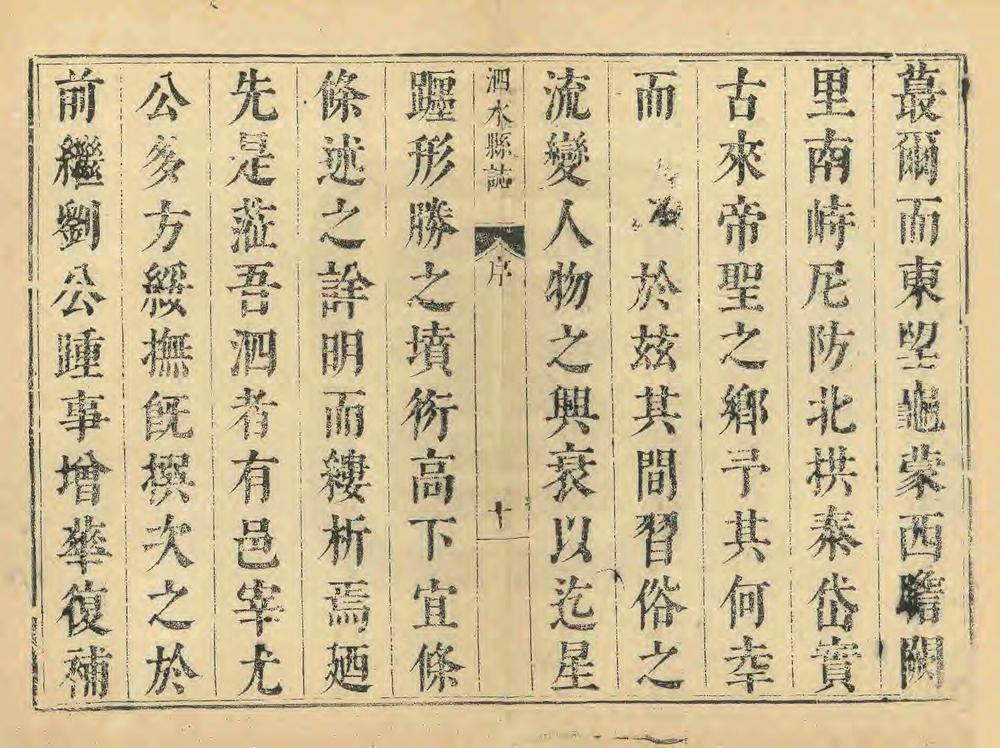 蕞爾而東朢龜蒙西瞻闕
里南峙尼防北拱泰岱實
古來帝聖之鄉予其何幸
而於兹其間習俗之
流變人物之興衰以迄星
泗水縣誌 序 十
躔形勝之墳衍高下宜條
條述之詮明而縷析焉廼
先是蒞吾泗者有邑宰尤
公多方綏撫既撰次之於
前繼劉公踵事增華復補